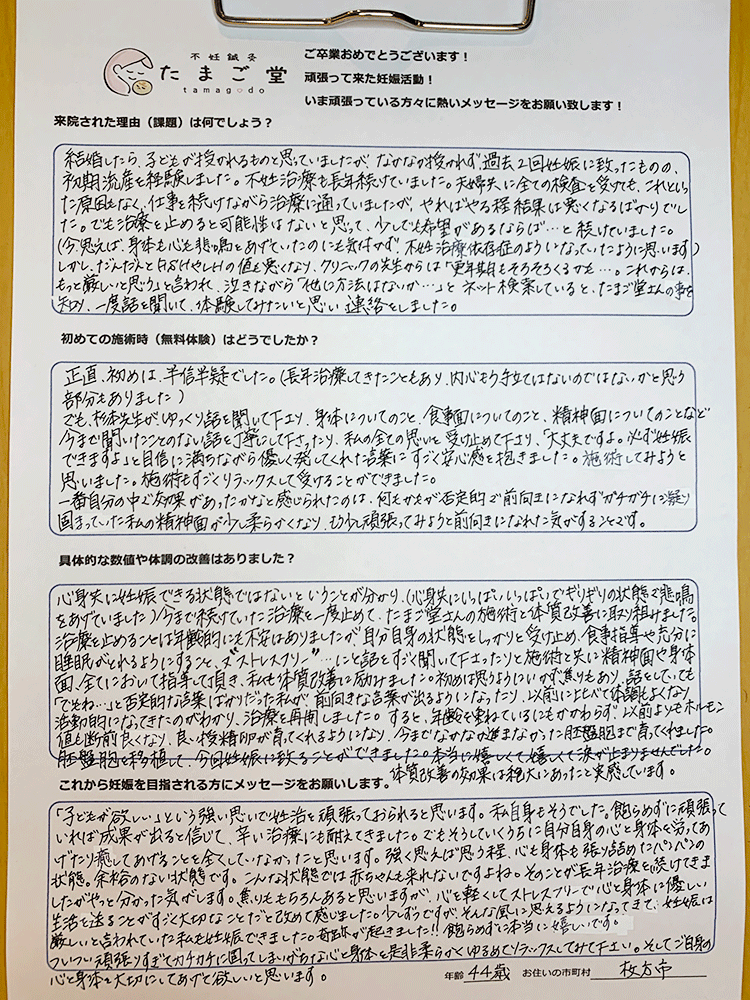 不妊鍼灸
たまご堂
tamagodo
ご卒業おめでとうございます！
頑張って来た妊娠活動！
いま頑張っている方々に熱いメッセージをお願い致します！
来院された理由（課題）は何でしょう？
結婚したら、子どもが授かれるものと思っていましたが、なかなか授かれず、過去2回妊娠に致ったものの、
初期流産を経験しました。不妊治療も長年続けていました。夫婦共に全ての検査を受けても、これといっ
た原因もなく、仕事を続けながら治療に通っていましたが、やればやる程結果は悪くなるばかりでし
た。でも治療を止めると可能性はないと思って、少しでも希望があるならば…と続けていました。
（今思えば、身体も心も悲鳴をあげていたのにも気付かず、不妊治療依存症のようになっていたように思います）
しかし、だんだんとFSHやLHの値も悪くなり、クリニックの先生からは「更年期もそろそろくるかも…。これからは、
もっと厳しいと思う」と言われ、泣きながら「他に方法はないか…」とネット検索していると、たまご堂さんの事を
知り、一度話を聞いて、体験してみたいと思い連絡をしました。
初めての施術時（無料体験）はどうでしたか？
正直、初めは、半信半疑でした。（長年治療してきたこともあり、内心もう手立てはないのではないかと思う
部分もありました）
でも、杉本先生がゆっくり話を聞いて下さり、身体についてのこと、食事面についてのこと、精神面についてのことなど
今まで聞いたことのない話を丁寧にして下さったり、私の全ての思いを受け止めて下さり、「大丈夫ですよ。必ず妊娠
できますよ」と自信に満ちながら優しく発してくれた言葉にすごく安心感を抱きました。施術してみようと
思いました。施術もすごくリラックスして受けることができました。
一番自分の中で効果があったかなと感じられたのは、何もかもが否定的で前向きになれずガチガチに凝り
固まっていた私の精神面が少し柔らかくなり、もう少し頑張ってみようと前向きになれた気がすることです。
具体的な数値や体調の改善はありました？
心身共に妊娠できる状態ではないということが分かり、（心身共にいっぱいいっぱいでギリギリの状態で悲鳴
をあげていました）今まで続けていた治療を一度止めて、たまご堂さんの施術と体質改善に取り組みました。
治療を止めることは年齢的にも不安はありましたが、自分自身の状態をしっかりと受け止め、食事指導や充分に
睡眠がとれるようにすること、“ストレスフリー”…にと話をすごく聞いて下さったりと施術と共に精神面や身体
面、全てにおいて指導して頂き、私も体質改善に励みました。初めは思うようにいかず焦りもあり、話をしていても
「でもね…」と否定的な言葉ばかりだった私が、前向きな言葉が出るようになったり、以前に比べて体調もよくなり、
活動的になってきたのがわかり、治療を再開しました。すると、年齢を重ねているにもかかわらず、以前よりもホルモン
値も断然良くなり、良い授精卵が育ってくれるようになり、今までなかなか進まなかった胚盤胞まで育ってくれました。
胚盤胞を移植して、今回妊娠に致ることができました。本当に嬉しくて嬉しくて涙が止まりませんでした。
体質改善の効果は絶大にあったと実感しています。
これから妊娠を目指される方にメッセージをお願いします。
「子どもが欲しい」という強い思いで妊活を頑張っておられると思います。私自身もそうでした。飽らめずに頑張って
いれば成果が出ると信じて、辛い治療にも耐えてきました。でもそうしていくうちに自分自身の心と身体を労ってあ
げたり癒してあげることを全くしていなかったと思います。強く思えば思う程、心も身体も張り詰めたパンパンの
状態。余裕のない状態です。こんな状態では赤ちゃんも来れないですよね。そのことが長年治療を続けてきま
したがやっと分かった気がします。焦りももちろんあると思いますが、心を軽くしてストレスフリーで心と身体に優しい
生活を送ることがすごく大切なことだと改めて感いました。少しずつですが、そんな風に思えるようになってきて、妊娠は
厳しいと言われていた私も妊娠できました。奇跡が起きました!!飽らめずに本当に嬉しいです。
ついつい頑張りすぎてカチカチに固ってしまいがちな心と身体を是非柔らかくゆるめてリラックスしてみて下さい。そしてご自身の
心と身体を大切にしてあげて欲しいと思います。
年齢 44歳 お住いの市町村 枚方市